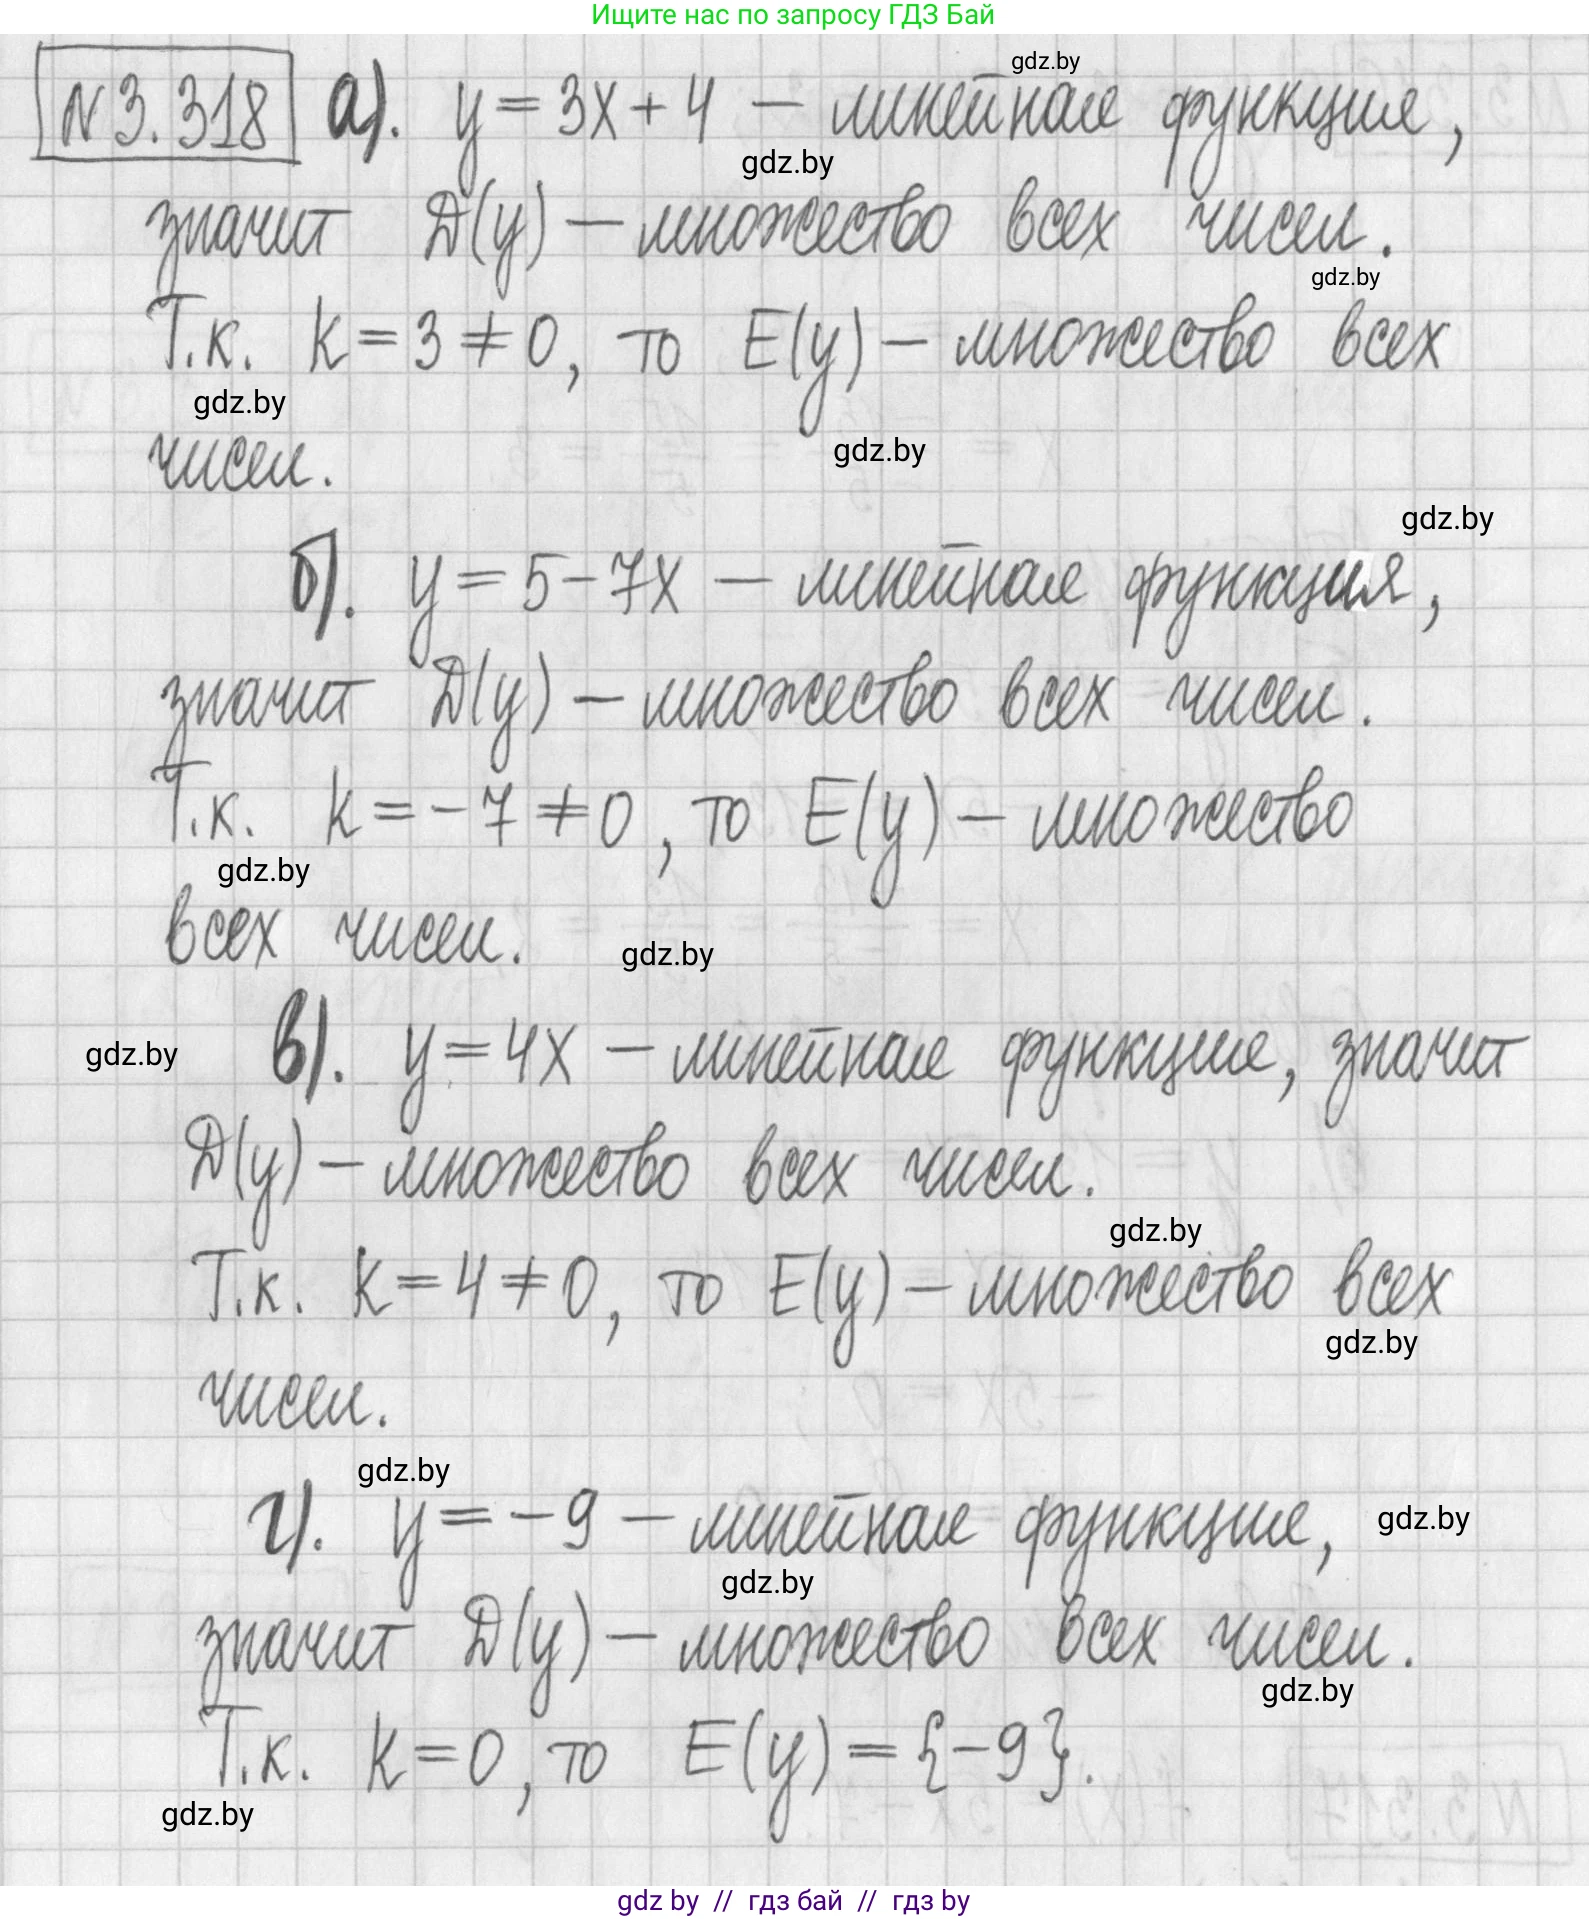 Ищите нас по запросу ГДЗ Бай
gdz.by
N3.318 а). y = 3x + 4 — линейная функция,
gdz.by
значит D(y) — множество всех чисел.
gdz.by
Т.к. k = 3 ≠ 0, то E(y) — множество всех
gdz.by
gdz.by
чисел.
gdz.by
б). y = 5 - 7x — линейная функция,
значит D(y) — множество всех чисел.
Т.к. k = -7 ≠ 0, то E(y) — множество
gdz.by
всех чисел.
gdz.by
gdz.by
в). y = 4x — линейная функция, значит
D(y) — множество всех чисел.
gdz.by
Т.к. k = 4 ≠ 0, то E(y) — множество всех
gdz.by
чисел.
gdz.by
г). y = -9 — линейная функция,
gdz.by
gdz.by
значит D(y) — множество всех чисел.
gdz.by
Т.к. k = 0, то E(y) = {-9}.
gdz.by
gdz by // гдз бай // гдз by